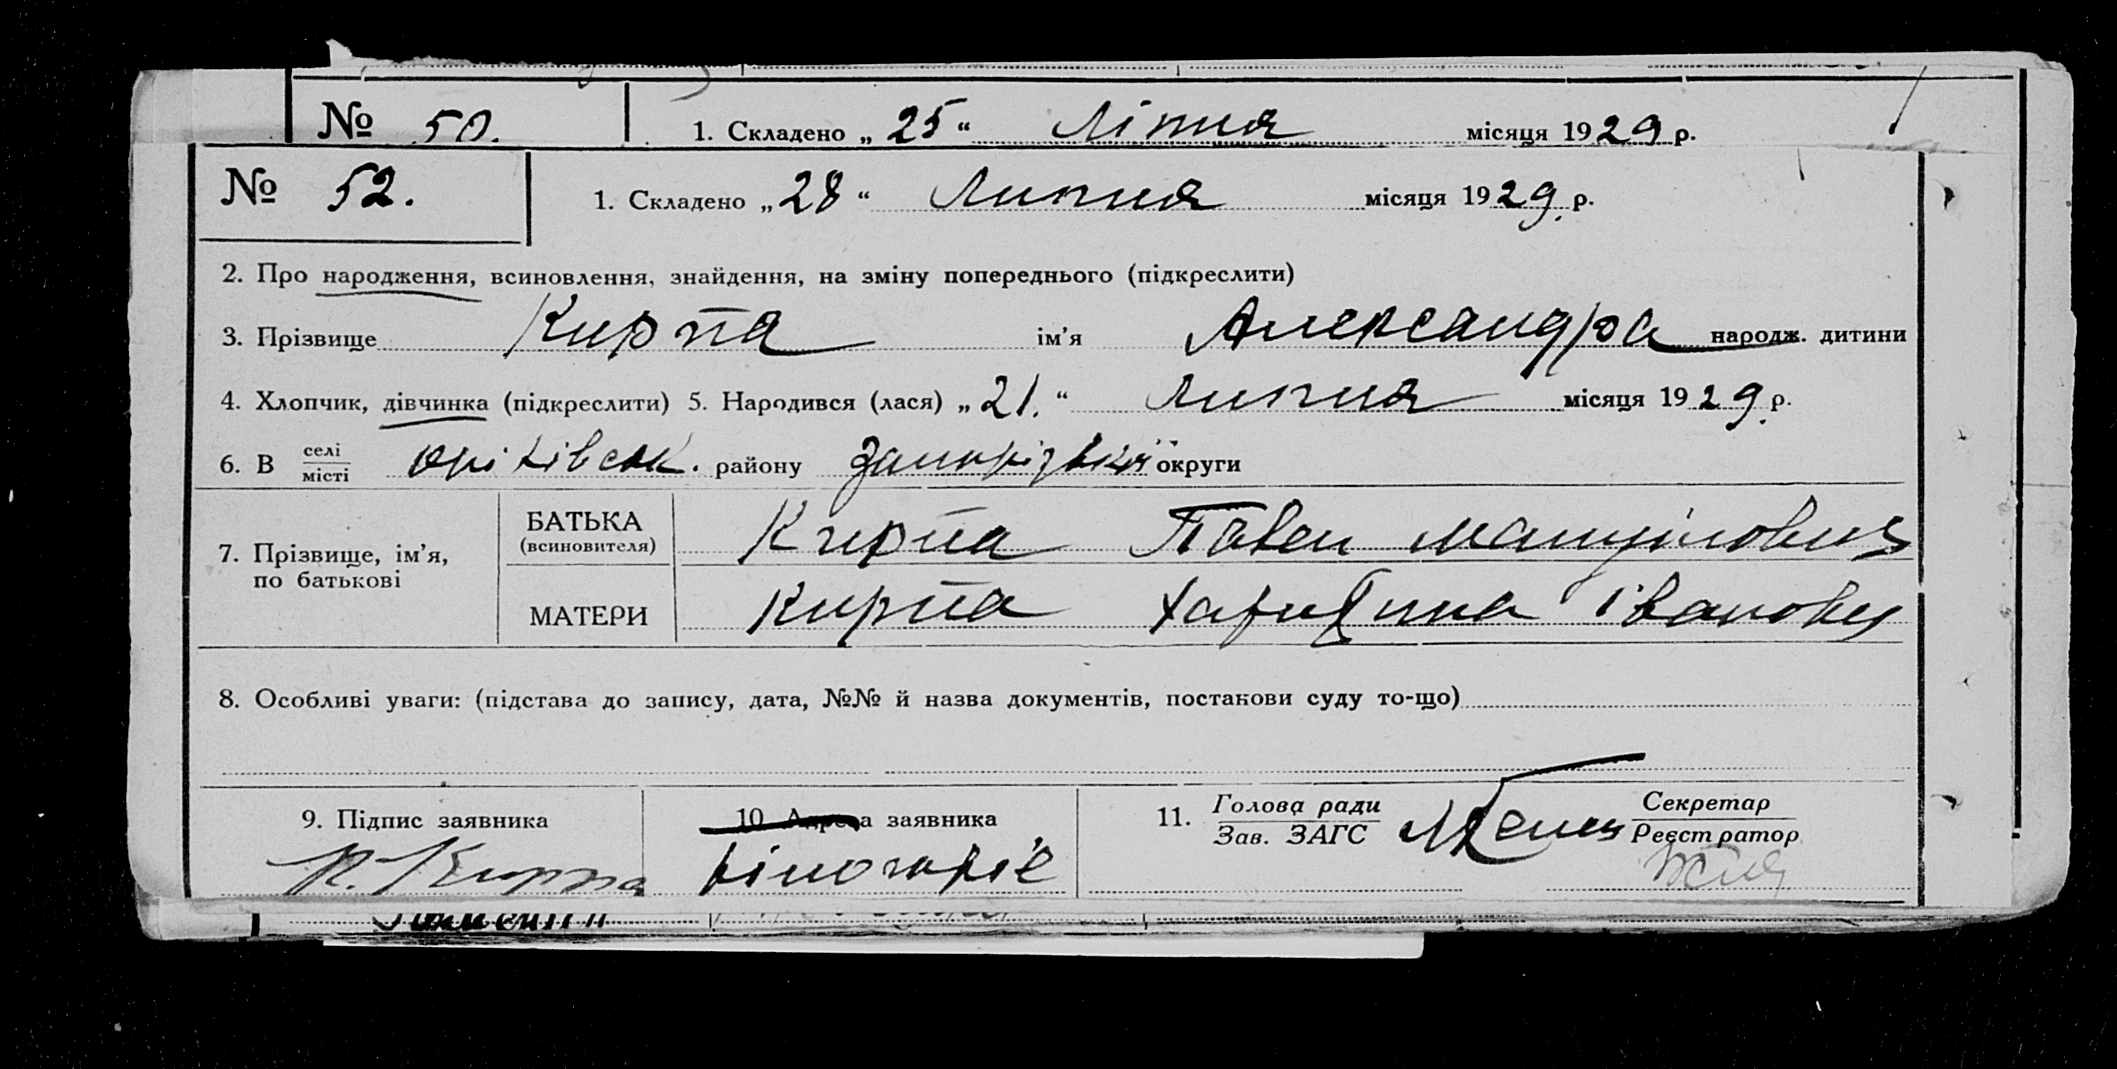 № 50. 1. Складено „ 25 “ Ліпня місяця 1929 р.
№ 52. 1. Складено „ 28 “ Липня місяця 1929 р.
2. Про народження, всиновлення, знайдення, на зміну попереднього (підкреслити)
3. Прізвище Кирпа ім’я Александра народж. дитини
4. Хлопчик, дівчинка (підкреслити) 5. Народився (лася) „ 21. “ Липня місяця 1929 р.
6. В селі
місті Оріхівськ. району Запорізької округи
7. Прізвище, ім’я,
по батькові
БАТЬКА
(всиновителя)
Кирпа Павел
МАТЕРИ
Кирпа Харитина Івановн
8. Особливі уваги: (підстава до запису, дата, №№ й назва документів, постанови суду то-що)
9. Підпис заявника
Кирпа
10 Адреса заявника
11. Голова ради
Зав. ЗАГС
Секретар
Реєстратор